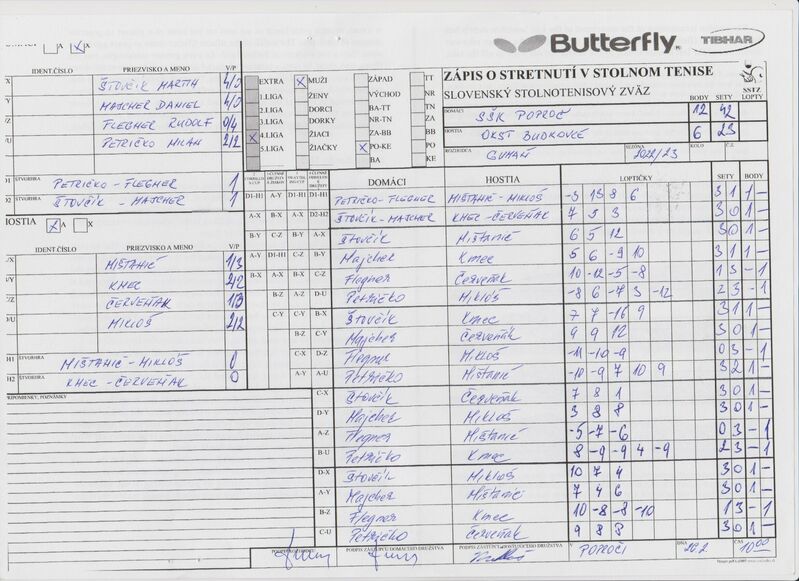 Butterfly TIBHAR
A X
IDENT.ČÍSLO PRIEZVISKO A MENO V/P
ŠTOVČÍK MARTIN 4/0
MAJCHER DANIEL 4/0
FLEGNER RUDOLF 0/4
PETRIČKO MILAN 2/2
ŠTVORHRA PETRIČKO - FLEGNER 1
D2 ŠTVORHRA ŠTOVČÍK - MAJCHER 1
HOSTIA X A X
IDENT.ČÍSLO PRIEZVISKO A MENO V/P
MIŠTANIČ 1/3
KMEC 2/2
ČERVEŇÁK 1/3
MIKLÓŠ 2/2
H1 ŠTVORHRA MIŠTANIČ - MIKLÓŠ 0
H2 ŠTVORHRA KMEC - ČERVEŇÁK 0
PRIPOMIENKY, POZNÁMKY
EXTRA X MUŽI ZÁPAD TT
1.LIGA ŽENY VÝCHOD NR
2.LIGA DORCI BA-TT TN
3.LIGA DORKY NR-TN ZA
X 4.LIGA ŽIACI ZA-BB BB
5.LIGA ŽIAČKY X PO-KE PO
BA KE
ZÁPIS O STRETNUTÍ V STOLNOM TENISE
SLOVENSKÝ STOLNOTENISOVÝ ZVÄZ SSTZ
BODY SETY LOPTY
DOMÁCI SŠK POPROČ 12 42
HOSTIA OKST BUDKOVCE 6 23
ROZHODCA GUMAN SEZÓNA 2022/23 KOLO Č.Z.
DOMÁCI HOSTIA LOPTIČKY SETY BODY
D1-H1 A-Y D1-H1 D1-H1 PETRIČKO-FLEGNER MIŠTANIČ-MIKLÓŠ -3 13 8 6 3 1 1 -
A-X B-X A-X D2-H2 ŠTOVČÍK-MAJCHER KMEC-ČERVEŇÁK 7 5 3 3 0 1 -
B-Y C-Z B-Y A-X Štovčík Mištanič 6 5 12 3 0 1 -
A-Y D1-H1 C-Z B-Y Majcher Kmec 5 6 -9 10 3 1 1 -
B-X A-X B-X C-Z Flegner Červeňák 10 -12 -5 -8 1 3 - 1
B-Z A-Z D-U Petričko Miklóš -8 6 -7 3 -12 2 3 - 1
C-Y C-Y B-X Štovčík Kmec 7 7 -16 9 3 1 1 -
B-Z C-Y Majcher Červeňák 9 9 12 3 0 1 -
C-X D-Z Flegner Miklóš -11 -10 -9 0 3 - 1
A-Y A-U Petričko Mištanič -10 -9 7 10 9 3 2 1 -
C-X Štovčík Červeňák 7 8 1 3 0 1 -
D-Y Majcher Miklóš 3 8 8 3 0 1 -
A-Z Flegner Mištanič -5 -7 -6 0 3 - 1
B-U Petričko Kmec 8 -9 -9 4 -9 2 3 - 1
D-X Štovčík Miklóš 10 7 4 3 0 1 -
A-Y Majcher Mištanič 7 4 6 3 0 1 -
B-Z Flegner Kmec 10 -8 -8 -10 1 3 - 1
C-U Petričko Červeňák 9 8 8 3 0 1 -
PODPIS ZÁSTUPCU DOMÁCEHO DRUŽSTVA PODPIS ZÁSTUPCU HOSŤUJÚCEHO DRUŽSTVA V POPROČI DŇA 20.2 ČAS 10.00